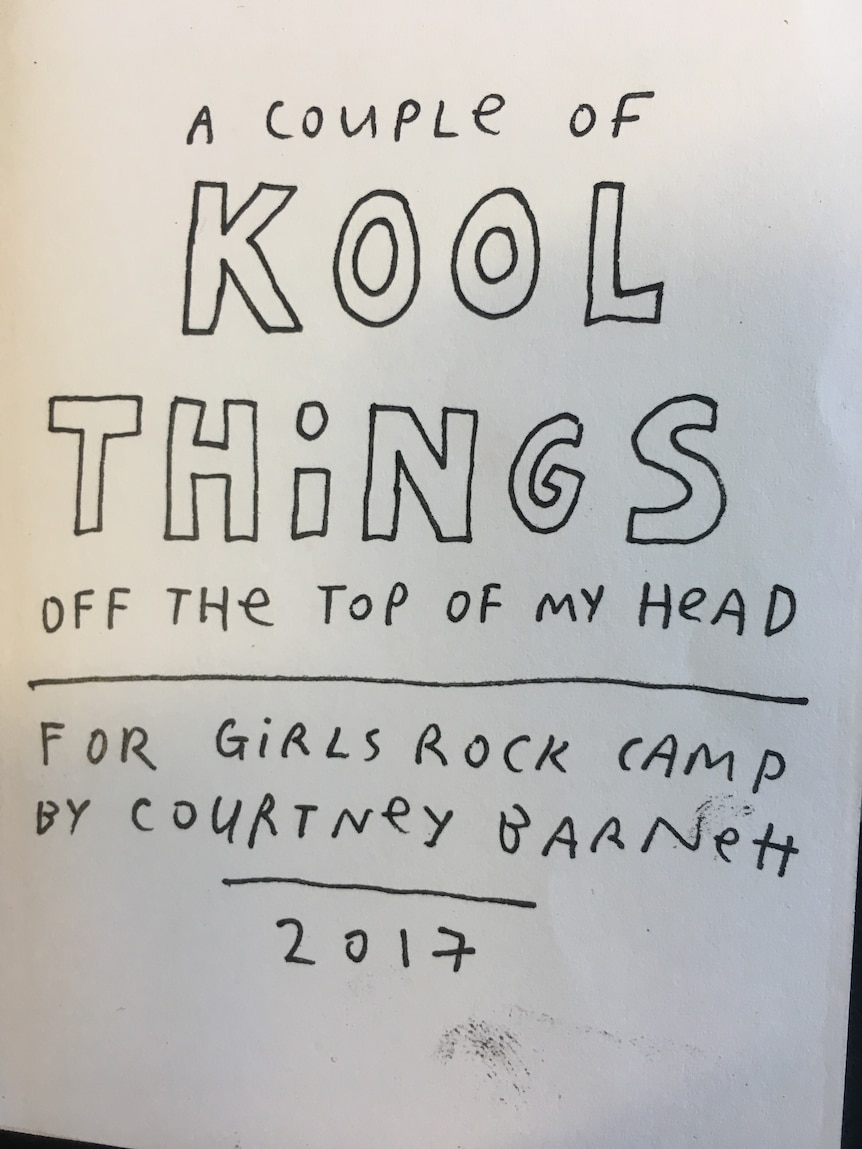 A COUPLe OF
KOOL
THiNGS
OFF THe TOP OF MY HeAD
FOR GiRLS ROCK CAMP
BY COURTNeY BARNeTT
2017